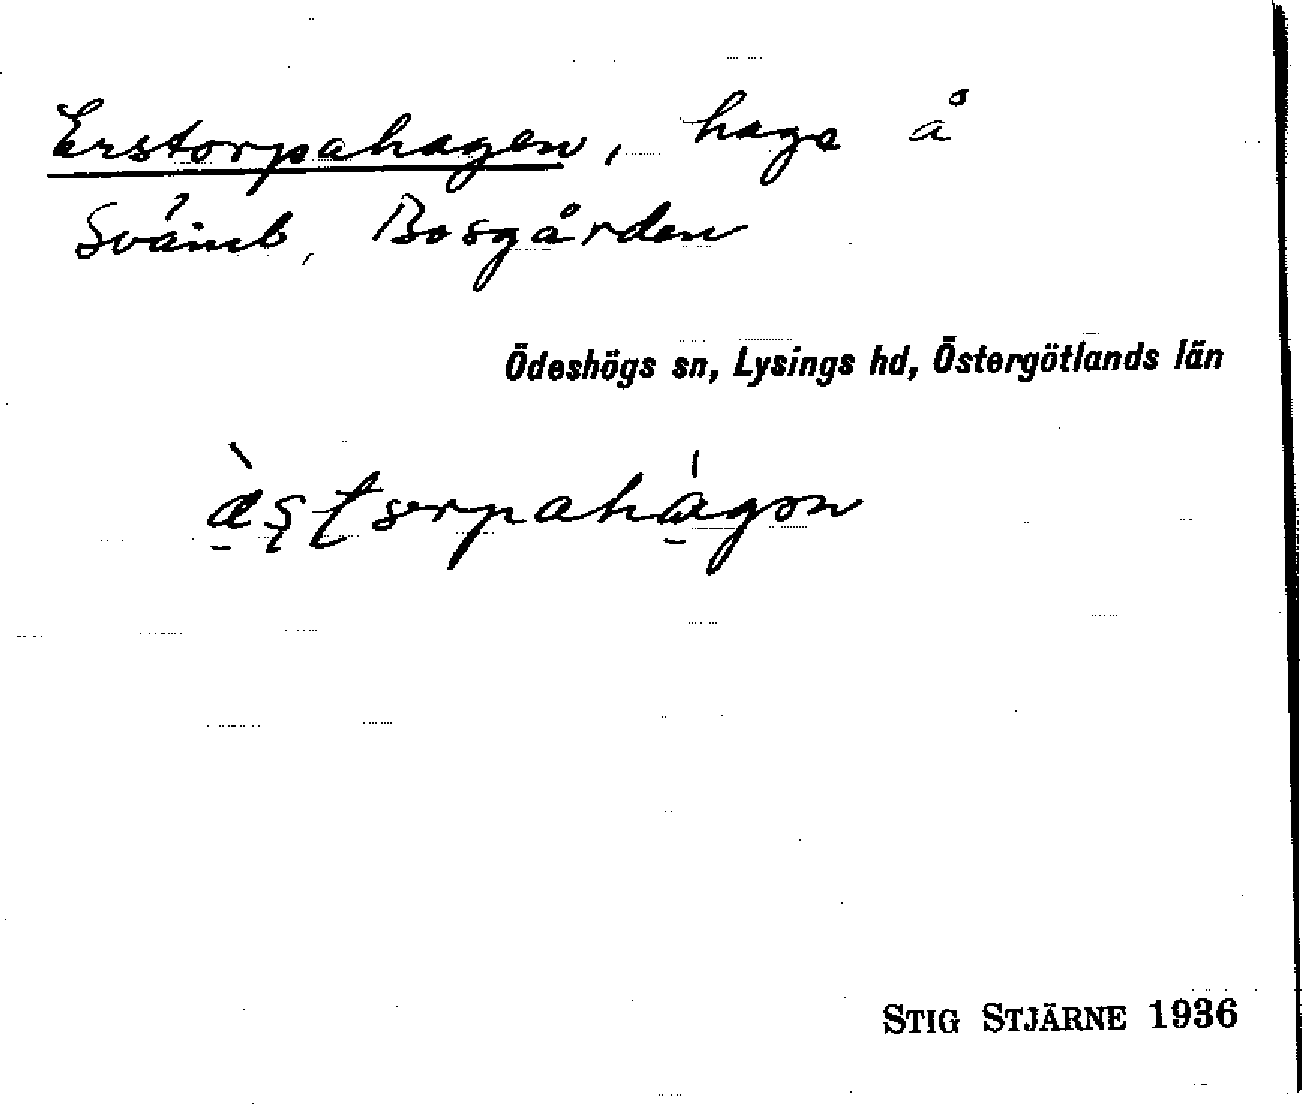 Erstorpahagen, hage å
Svämb, Bosgården
Ödeshögs sn, Lysings hd, Östergötlands län
STIG STJÄRNE 1936